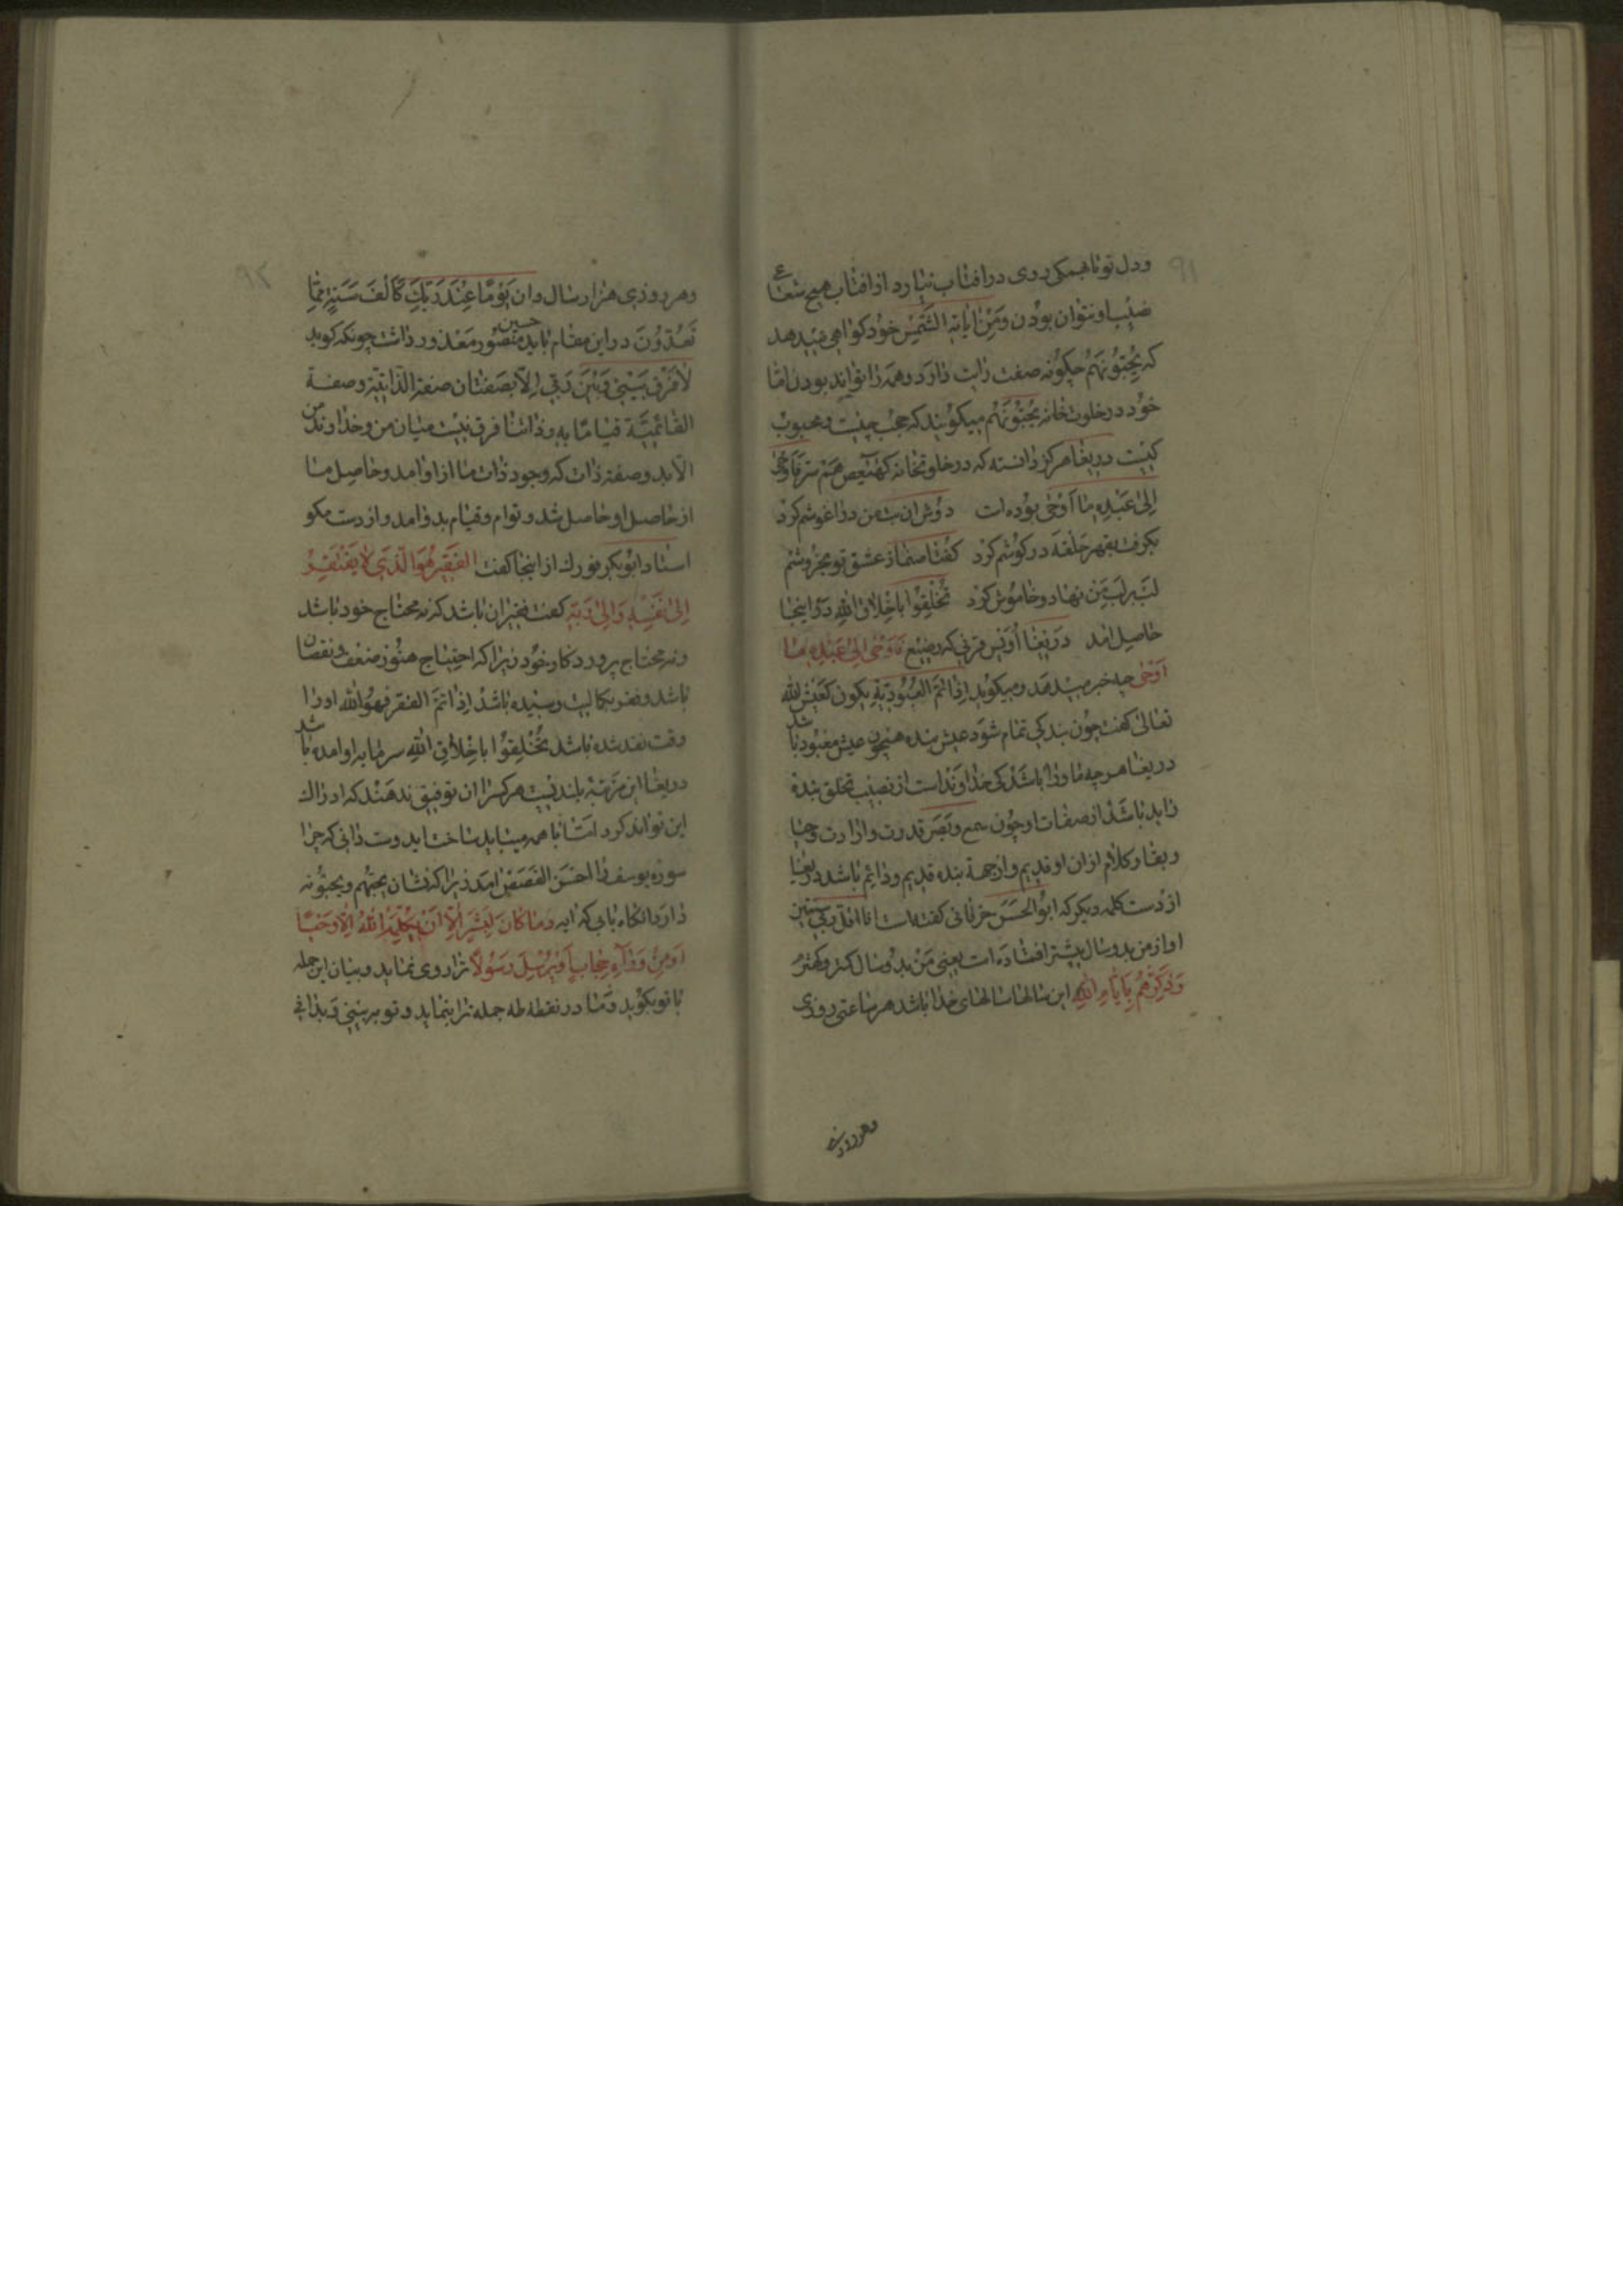 ۹۱
ودل تو تا بهمکی روی در افتاب نیارد از افتاب هیچ شعاع
نصیب او نتوان بودن ومن ایاته الشمس خود کواهی میدهد
که یحبونهم چکونه صفت ذات دارد وهمه را تواند بودن اما
خود در خلوت خانه یحبونهم میکویند که محب چیست ومحبوب
کیست دریغا هرکز دانسته که در خلوتخانه کهیعص هم سر فاوحی
اِلیٰ عَبْدِه ما اَوْحیٰ بوده است دوش ان بت من در اغوشم کرد
بکرفت بقهر حلقه در کوشم کرد کفتا صنما از عشق تو بخروشم
لب بر لب من نهاد وخاموش کرد تخلقوا باخلاق الله در اینجا
حاصل امد دریغا اویس قرنی که رضیع فاوحی الی عبده ما
اوحی چه خبر میدهد ومیکوید اذا تم العبودیة یکون کعیش الله
تعالی کفت چون بندکی تمام شود عیش بنده همچون عیش معبود باشد
دریغا هرچه ما ورا باشد کی خداوند است از نصیب تخلق بنده
زاید باشد از صفات او چون سمع وبصر قدرت وارادت وحیا
وبقا وکلام ازان او قدیم وازجهة بنده قدیم ودائم باشد دریغا
از دست کلمه دیکر که ابوالحسن خرقانی کفته است انا اقل ربی سنتین
او از من بدو سال پیشتر افتاده است یعنی من بدو سال کمتر وکهتر
وَذَکِّرْهُمْ بِاَیّٰامِ اللهِ این سالها سالهای خدا باشد هر ساعتی روزی
وهر روزی
۹۲
وهر روزی هزار سال وان یَوْمًا عِنْدَ رَبِّكَ کَاَلْفَ سَنَةٍ مِمّٰا
تَعُدّوُنَ در این مقام باید حسین منصور معذور داشت چونکه کوید
لا فَرْقَ بَیْنی وَبَیْنَ رَبّی اِلّا بصفتان صفة الذاتیة وصفة
القائمیة قیامنا به وذاتنا فرق نیست میان من وخداوند من
الا بدو صفة ذات که وجود ذات ما از او امد وحاصل ما
از حاصل او حاصل شد وقوام وقیام بدو امد واز دست مکو
استاد ابوبکر فورك از اینجا کفت الفقیر هُوَ الَّذی لا یَفْتَقِرُ
اِلیٰ نَفْسِهِ وَالیٰ رَبِّهِ کفت فقیر ان باشد که نه محتاج خود باشد
ونه محتاج پروردکار خود زیرا که احتیاج هنوز ضعف ونقصان
باشد وفقر بکمالیت رسیده باشد اِذا تَمَّ الفقر فهو الله اورا
وقت نقد شده باشد تخلقوا باخلاق الله سرمایه او امده باشد
دریغا این مرتبه بلند نیست هرکس را ان توفیق ندهند که ادراك
این تواند کرد اما با همه میباید ساخت ایدوست دانی که چرا
سوره یوسف را احسن القصص امد زیرا که نشان یحبهم ویحبونه
دارد انکاه یابی که ایه وَما کانَ لِبَشَرٍ اَنْ یُکَلِّمَهُ اللهُ اِلّا وَحْیًا
اَوْ مِنْ وَرٰآءِ حِجٰابٍ اَوْ یُرْسِلَ رَسُولًا ترا روی نماید وبیان این جمله
با تو بکوید وما در نقطه طه جمله ترا بنماید وتو ببینی وبدانی